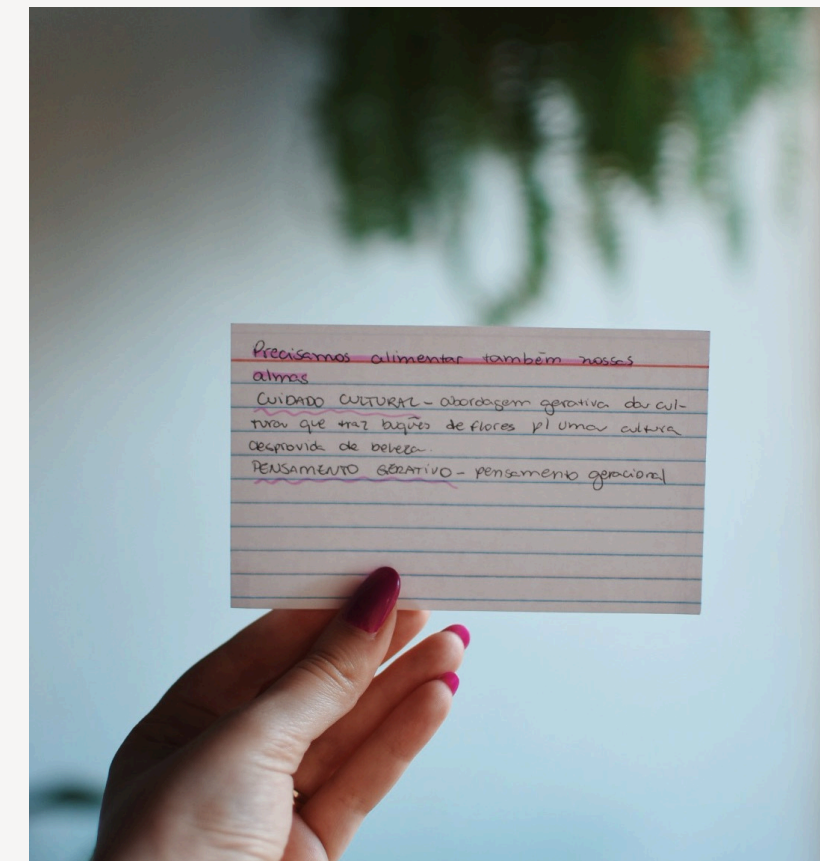 Precisamos alimentar também nossas
almas
CUIDADO CULTURAL - abordagem gerativa da cul-
tura que traz buquês de flores p/ uma cultura
desprovida de beleza.
PENSAMENTO GERATIVO - pensamento geracional